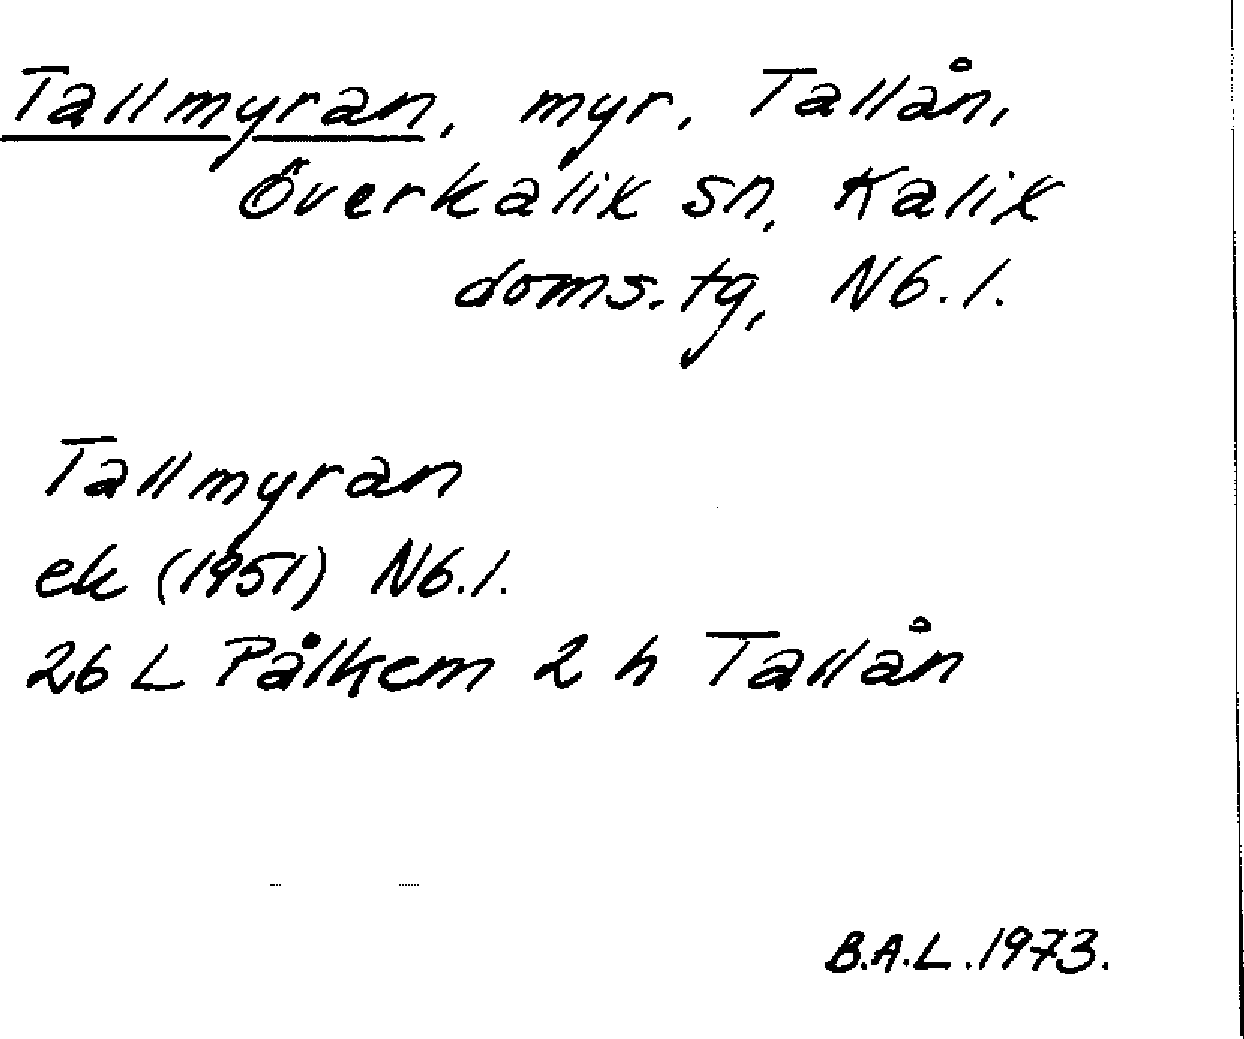 Tallmyran, myr, Tallån,
Överkalix sn, Kalix
doms.tg, N6.1.
Tallmyran
ek (1951) N6.1.
26 L Pålkem 2 h Tallån
B.A.L. 1973.